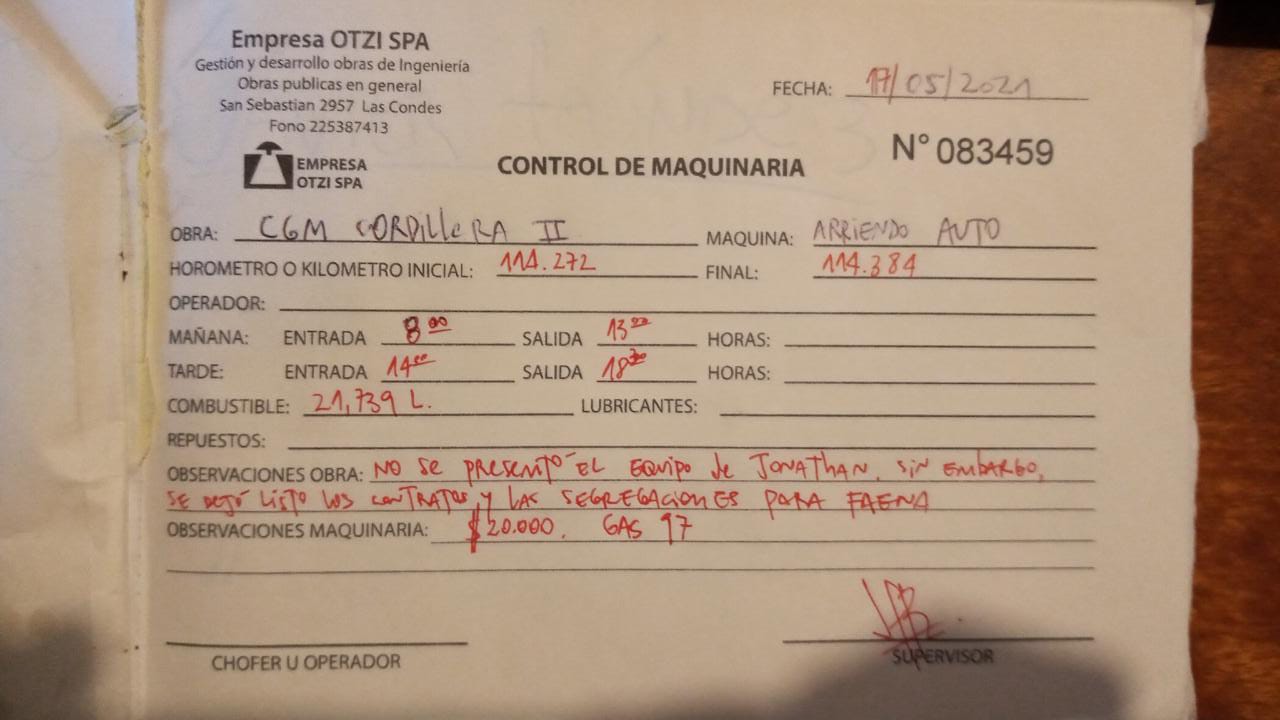 Empresa OTZI SPA
Gestión y desarrollo obras de Ingeniería
Obras publicas en general
San Sebastian 2957 Las Condes
Fono 225387413
FECHA: 17/05/2021
EMPRESA
OTZI SPA
CONTROL DE MAQUINARIA
N° 083459
OBRA: CGM CORDILLERA II MAQUINA: ARRIENDO AUTO
HOROMETRO O KILOMETRO INICIAL: 114.272 FINAL: 114.384
OPERADOR:
MAÑANA: ENTRADA 8 00 SALIDA 13 00 HORAS:
TARDE: ENTRADA 14 00 SALIDA 18 30 HORAS:
COMBUSTIBLE: 21,739 L. LUBRICANTES:
REPUESTOS:
OBSERVACIONES OBRA: NO SE PRESENTÓ EL EQUIPO de JONATHAN. SIN EMBARGO,
SE DEJÓ LISTO LOS CONTRATOS y LAS SEGREGACIONES PARA FAENA
OBSERVACIONES MAQUINARIA: $20.000. GAS 97
CHOFER U OPERADOR
SUPERVISOR